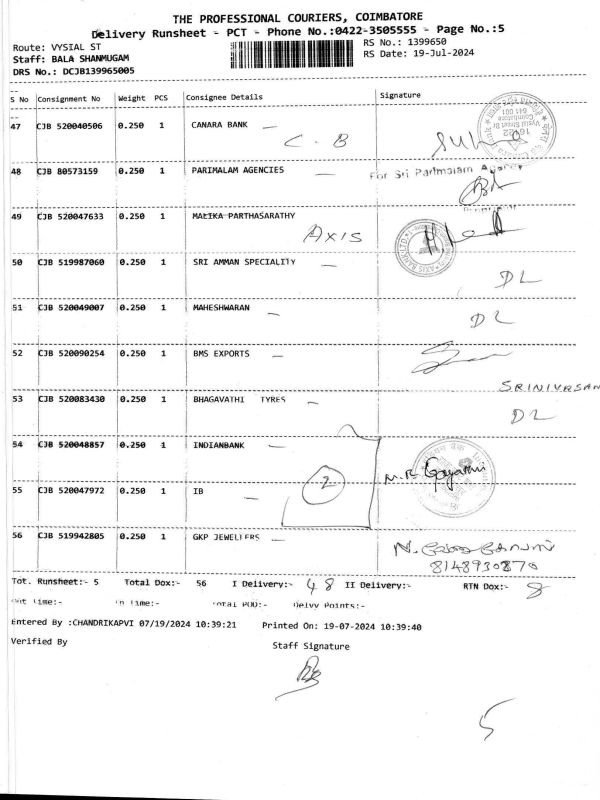 THE PROFESSIONAL COURIERS, COIMBATORE
Delivery Runsheet - PCT - Phone No.:0422-3505555 - Page No.:5
Route: VYSIAL ST
RS No.: 1399650
Staff: BALA SHANMUGAM
RS Date: 19-Jul-2024
DRS No.: DCJB139965005
S No Consignment No Weight PCS Consignee Details Signature
47 CJB 520040506 0.250 1 CANARA BANK
C. B
48 CJB 80573159 0.250 1 PARIMALAM AGENCIES
For Sri Parimalam Agency
49 CJB 520047633 0.250 1 MALIKA PARTHASARATHY
AXIS
50 CJB 519987060 0.250 1 SRI AMMAN SPECIALITY
DL
51 CJB 520049007 0.250 1 MAHESHWARAN
DL
52 CJB 520090254 0.250 1 BMS EXPORTS
SRINIVASAN
53 CJB 520083430 0.250 1 BHAGAVATHI TYRES
DL
54 CJB 520048857 0.250 1 INDIANBANK
2
55 CJB 520047972 0.250 1 IB
56 CJB 519942805 0.250 1 GKP JEWELLERS
8148930870
Tot. Runsheet:- 5 Total Dox:- 56 I Delivery:- 48 II Delivery:- RTN Dox:- 8
Out Time:- In Time:- Total POD:- Delvy Points:-
Entered By :CHANDRIKAPVI 07/19/2024 10:39:21 Printed On: 19-07-2024 10:39:40
Verified By
Staff Signature
5